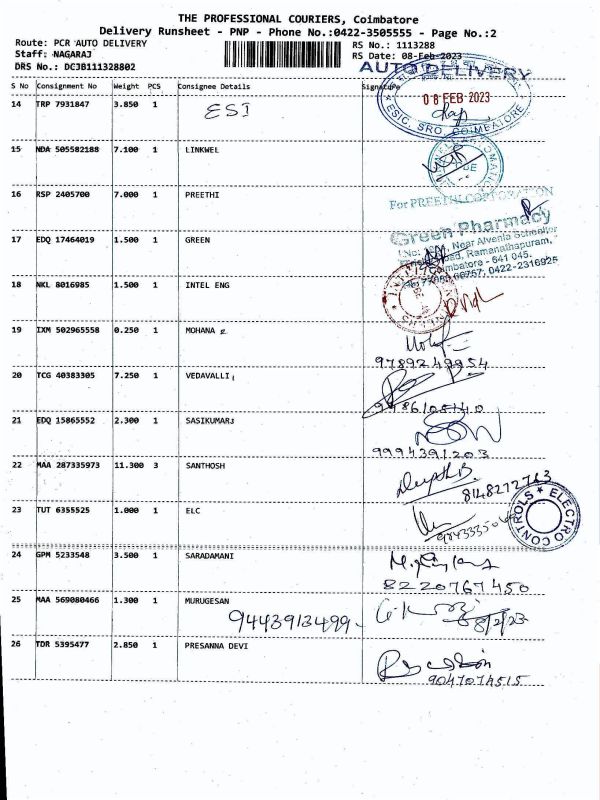 THE PROFESSIONAL COURIERS, Coimbatore
Delivery Runsheet - PNP - Phone No.:0422-3505555 - Page No.:2
Route: PCR AUTO DELIVERY RS No.: 1113288
Staff: NAGARAJ RS Date: 08-Feb-2023
DRS No.: DCJB111328802 AUTO DELIVERY
S No Consignment No Weight PCS Consignee Details Signature
14 TRP 7931847 3.850 1 ESI
08 FEB 2023
ESIC, SRO, COIMBATORE
15 NDA 505582188 7.100 1 LINKWEL
16 RSP 2405700 7.000 1 PREETHI
For PREETHI CORPORATION
17 EDQ 17464019 1.500 1 GREEN
Green Pharmacy
Near Alvenia Schenllyer
Road, Ramanathapuram,
Coimbatore - 641 045.
66757, 0422-2316925
18 NKL 8016985 1.500 1 INTEL ENG
19 IXM 502965558 0.250 1 MOHANA
9789249954
20 TCG 40383305 7.250 1 VEDAVALLI
9486105140
21 EDQ 15865552 2.300 1 SASIKUMAR
9994391203
22 MAA 287335973 11.300 3 SANTHOSH
8148272763
23 TUT 6355525 1.000 1 ELC
ELECTRO CONTROLS
24 GPM 5233548 3.500 1 SARADAMANI
8220767450
25 MAA 569080466 1.300 1 MURUGESAN
9443913499 8/2/23
26 TDR 5395477 2.850 1 PRESANNA DEVI
9047074515